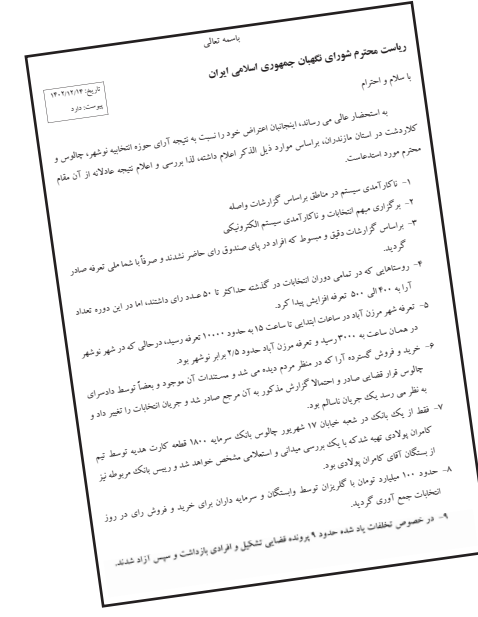 باسمه تعالی
ریاست محترم شورای نگهبان جمهوری اسلامی ایران
تاریخ: ۱۴۰۲/۱۲/۱۴
پیوست: دارد
با سلام و احترام
به استحضار عالی می رساند، اینجانبان اعتراض خود را نسبت به نتیجه آرای حوزه انتخابیه نوشهر، چالوس و
کلاردشت در استان مازندران، براساس موارد ذیل الذکر اعلام داشته، لذا بررسی و اعلام نتیجه عادلانه از آن مقام
محترم مورد استدعاست.
۱- ناکارآمدی سیستم در مناطق براساس گزارشات واصله
۲- برگزاری مبهم انتخابات و ناکارآمدی سیستم الکترونیکی
۳- براساس گزارشات دقیق و مبسوط که افراد در پای صندوق رای حاضر نشدند و صرفاً با شما ملی تعرفه صادر
گردید.
۴- روستاهایی که در تمامی دوران انتخابات در گذشته حداکثر تا ۵۰ عدد رای داشتند، اما در این دوره تعداد
آرا به ۴۰۰ الی ۵۰۰ تعرفه افزایش پیدا کرد.
۵- تعرفه شهر مرزن آباد در ساعات ابتدایی تا ساعت ۱۵ به حدود ۱۰۰۰۰ تعرفه رسید، درحالی که در شهر نوشهر
در همان ساعت به ۳۰۰۰ رسید و تعرفه مرزن آباد حدود ۲/۵ برابر نوشهر بود.
۶- خرید و فروش گسترده آرا که در منظر مردم دیده می شد و مستندات آن موجود و بعضاً توسط دادسرای
چالوس قرار قضایی صادر و احتمالا گزارش مذکور به آن مرجع صادر شد و جریان انتخابات را تغییر داد و
به نظر می رسد یک جریان ناسالم بود.
۷- فقط از یک بانک در شعبه خیابان ۱۷ شهریور چالوس بانک سرمایه ۱۸۰۰ قطعه کارت هدیه توسط تیم
کامران پولادی تهیه شدکه با یک بررسی میدانی و استعلامی مشخص خواهد شد و رییس بانک مربوطه نیز
از بستگان آقای کامران پولادی بود.
۸- حدود ۱۰۰ میلیارد تومان با گلریزان توسط وابستگان و سرمایه داران برای خرید و فروش رای در روز
انتخابات جمع آوری گردید.
۹- در خصوص تخلفات یاد شده حدود ۹ پرونده قضایی تشکیل و افرادی بازداشت و سپس آزاد شدند.